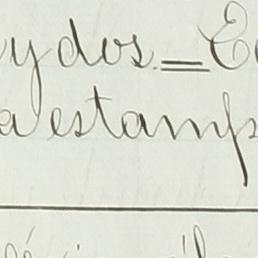 y dos.=E
a estamp